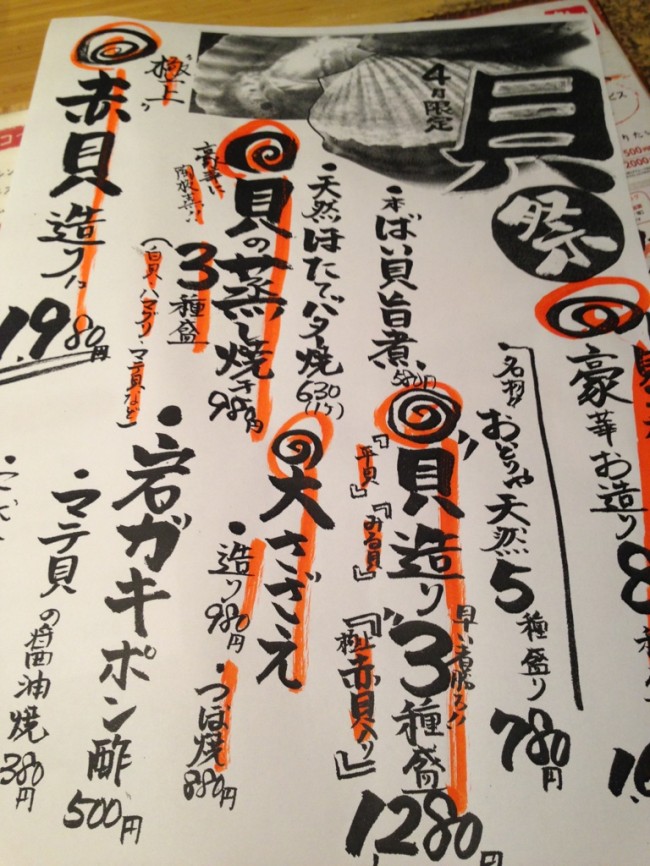 4月限定
貝
祭
豪華お造り
名物
おどりや天然
5種盛り
780円
・本ばい貝旨煮
580円
・天然ほたてバター焼
630
(1ケ)
貝造り3種盛
早い者勝ち!!
『平貝』『みる貝』
『極上赤貝入り』
1280円
貝の蒸し焼き
980円
豪華に
3種盛
(白貝・ハマグリ・マテ貝など)
大さざえ
・造り980円
・つぼ焼
880円
極上
赤貝造り
1,980円
・岩ガキポン酢
500円
・マテ貝の醤油焼
380円